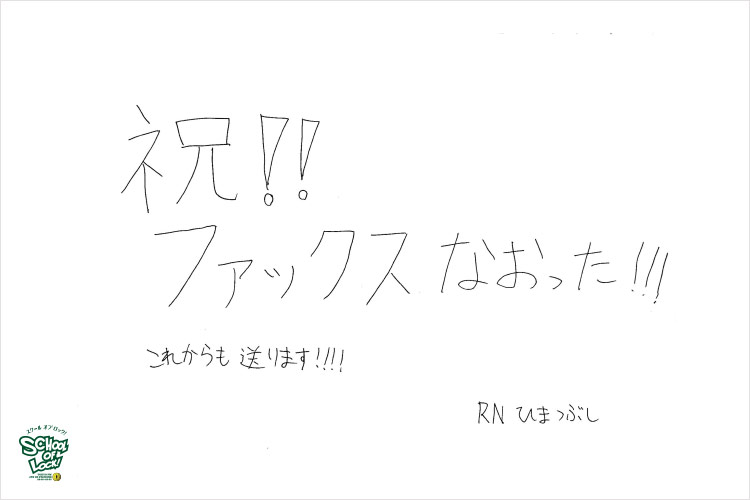 祝!!
ファックスなおった!!!
これからも送ります!!!!
RN ひまつぶし
スクール オブ ロック!
SCHOOL
OF
LOCK!